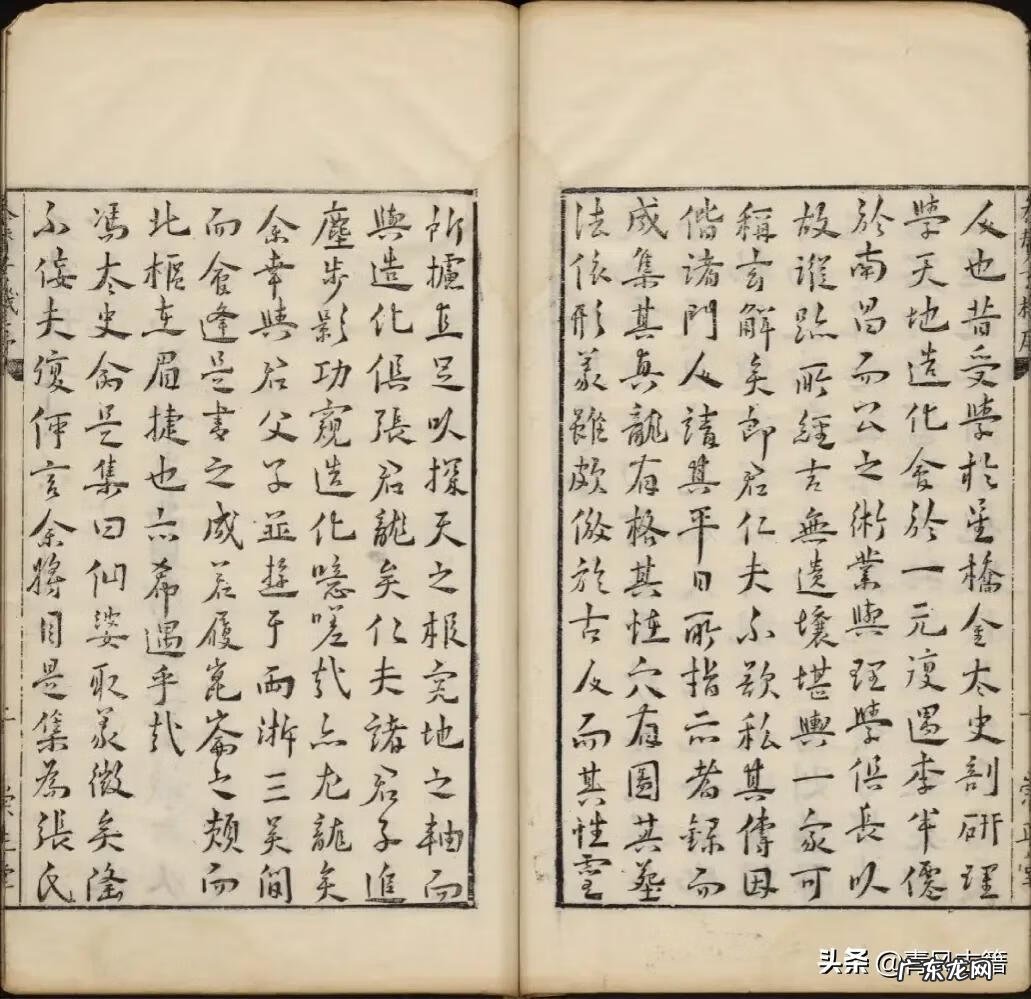 人也昔受學於星橋金太史剖研理
學天地造化會於一元復遇李半僊
於南昌而公之術業與理學俱長以
故蹤跡所經吉無遺壤堪輿一家可
稱玄解矣郎君仁夫不欲私其傳因
偕諸門人請其平日所指示者錄而
成集其真龍有格其性穴有圖其葬
法依形義雖頗倣於古人而其性靈
所攄直足以探天之根究地之軸而
與造化俱張君龍矣仁夫諸君子追
塵步影功窺造化噫嗟哉亦尤龍矣
余幸與君父子並遊于兩浙三吳間
而會逢是書之成若履崑崙之頰而
北樞在眉捷也亦希遇乎哉
馮太史侖是集曰仙婆取義微矣隆
不佞夫復何言余將目是集為張氏
頭条
广东龙网